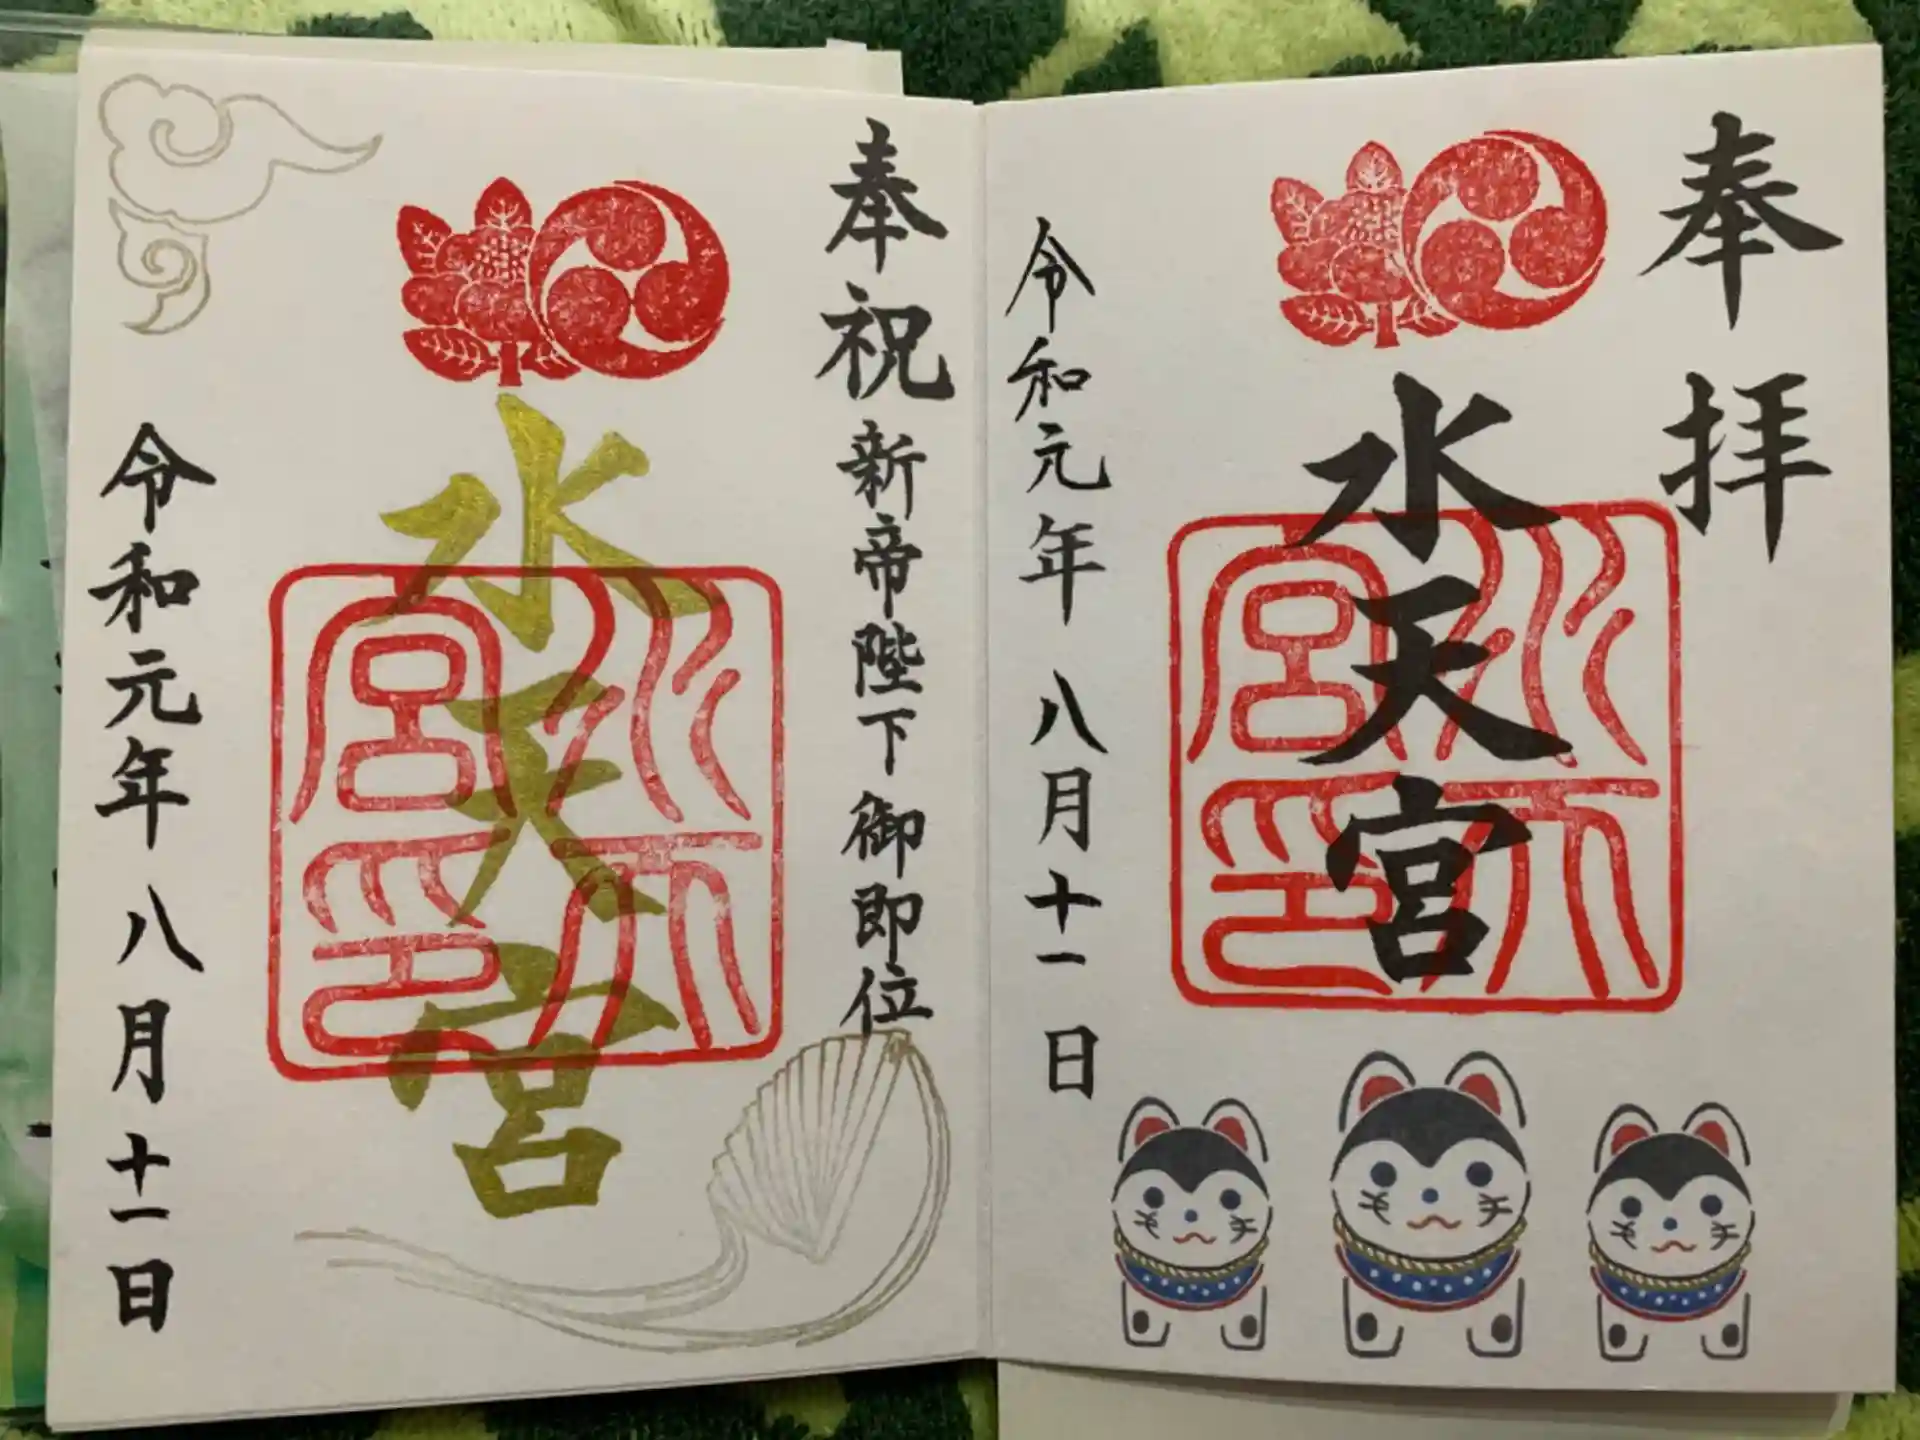 奉拝
水天宮
水天宮印
令和元年 八月十一日
奉祝 新帝陛下御即位
水天宮
水天宮印
令和元年 八月十一日